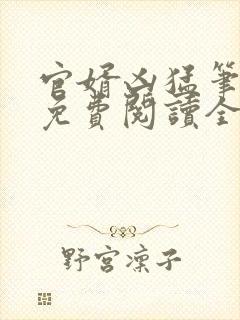 官婿凶猛筆
免費閱讀全
野宮凜子